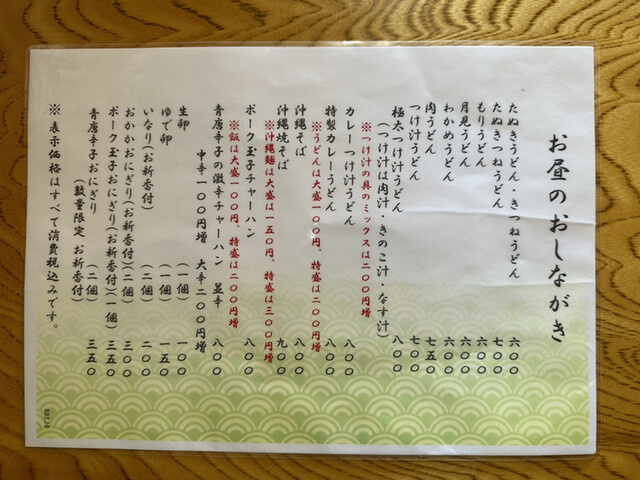 お昼のおしながき
たぬきうどん・きつねうどん 六〇〇
たぬきつねうどん 七〇〇
もりうどん 六〇〇
月見うどん 六〇〇
わかめうどん 六〇〇
肉うどん 七五〇
つけ汁うどん 七〇〇
極太つけ汁うどん 八〇〇
(つけ汁は肉汁・きのこ汁・なす汁)
※つけ汁の具のミックスは二〇〇円増
カレーつけ汁うどん 八〇〇
特製カレーうどん 八〇〇
※うどんは大盛一〇〇円、特盛は二〇〇円増
沖縄そば 八〇〇
沖縄焼そば 九〇〇
※沖縄麺は大盛は一五〇円、特盛は三〇〇円増
ポーク玉子チャーハン 八〇〇
※飯は大盛一〇〇円、特盛は二〇〇円増
青唐辛子の激辛チャーハン 並辛 八〇〇
中辛一〇〇円増 大辛二〇〇円増
生卵 (一個) 一〇〇
ゆで卵 (一個) 一五〇
いなり(お新香付) (二個) 二〇〇
おかかおにぎり(お新香付)(二個)
ポーク玉子おにぎり(お新香付)(一個) 三〇〇
青唐辛子おにぎり (二個) 三五〇
(数量限定 お新香付)
※ 表示価格はすべて消費税込みです。